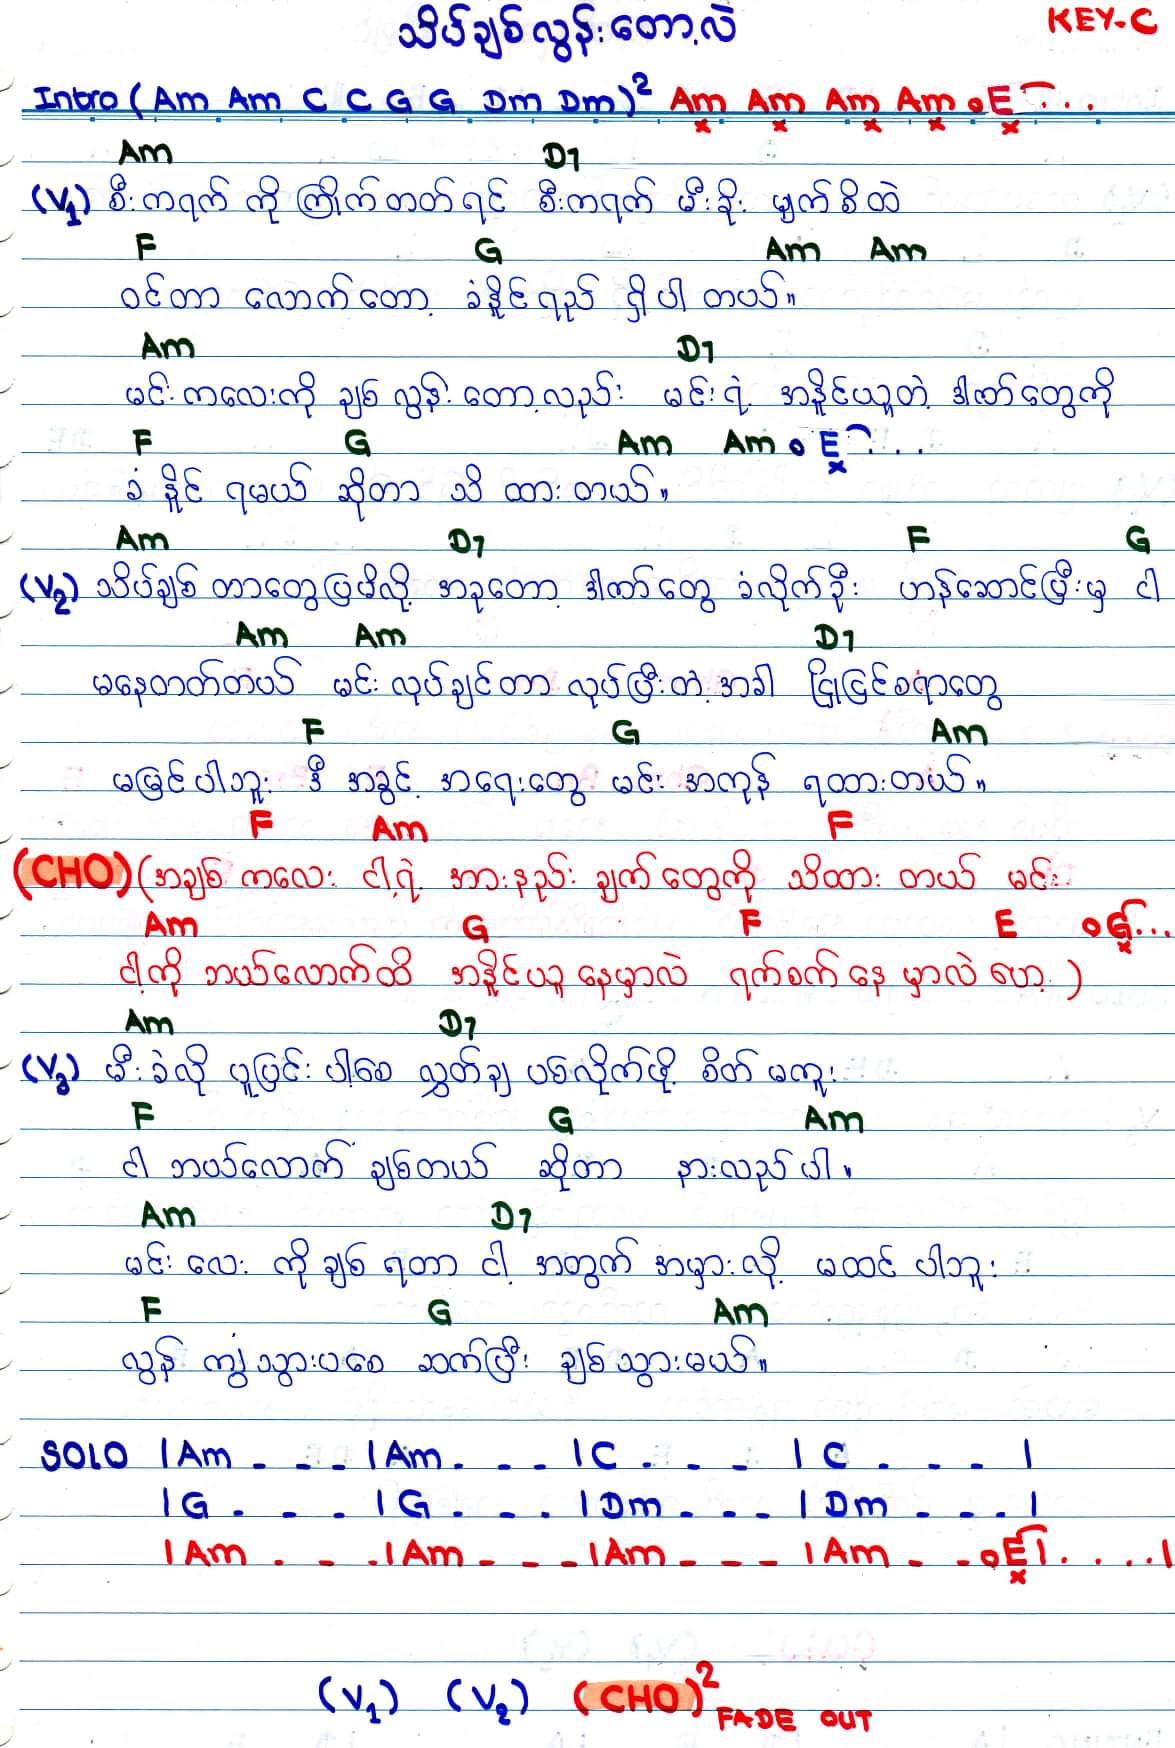 သိပ်ချစ်လွန်းတော့လဲ
KEY-C
Intro ( Am Am C C G G Dm Dm )² Am Am Am Am o E ...
Am D7
(V1) စီးကရက် ကို ကြိုက်တတ်ရင် စီးကရက် မီးခိုး မျက်စိထဲ
F G Am Am
ဝင်တာ လောက်တော့ ခံနိူင်ရည် ရှိပါ တယ်။
Am D7
မင်းကလေးကို ချစ်လွန်းတော့လည်း မင်းရဲ့ အနိူင်ယူတဲ့ ဒါဏ်တွေကို
F G Am Am o E ....
ခံ နိူင် ရမယ် ဆိုတာ သိ ထားတယ်။
Am D7 F G
(V2) သိပ်ချစ် တာတွေပြမိလို့ အခုတော့ ဒါဏ်တွေ ခံလိုက်ဦး ဟန်ဆောင်ပြီးမှ ငါ
Am Am D7
မနေတတ်တယ် မင်းလုပ်ချင်တာ လုပ်ပြီးတဲ့အခါ ငြိုငြင်စရာတွေ
F G Am
မမြင်ပါဘူး ဒီ အခွင့် အရေးတွေ မင်း အကုန် ရထားတယ်။
F Am F
(CHO) (အချစ် ကလေး ငါ့ရဲ့ အားနည်း ချက်တွေကို သိထား တယ် မင်း
Am G F E o G ...
ငါ့ကို ဘယ်လောက်ထိ အနိူင်ယူ နေမှာလဲ ရက်စက်နေ မှာလဲ ဟော့ )
Am D7
(V3) မီးခဲလို ပူပြင်း ပါစေ လွှတ်ချ ပစ်လိုက်ဖို့ စိတ် မကူး
F G Am
ငါ ဘယ်လောက် ချစ်တယ် ဆိုတာ နားလည်ပါ။
Am D7
မင်းလေး ကိုချစ် ရတာ ငါ့ အတွက် အမှားလို့ မထင်ပါဘူး
F G Am
လွန် ကျွံသွားပစေ ဆက်ပြီး ချစ်သွားမယ်။
SOLO | Am . - - | Am . - - | C . - - | C . - - |
| G . - - | G . - . | Dm . - - | Dm - - . |
| Am . - . | Am - - - | Am - - - | Am - - o E | . . . . |
(V1) (V2) (CHO)² FADE OUT